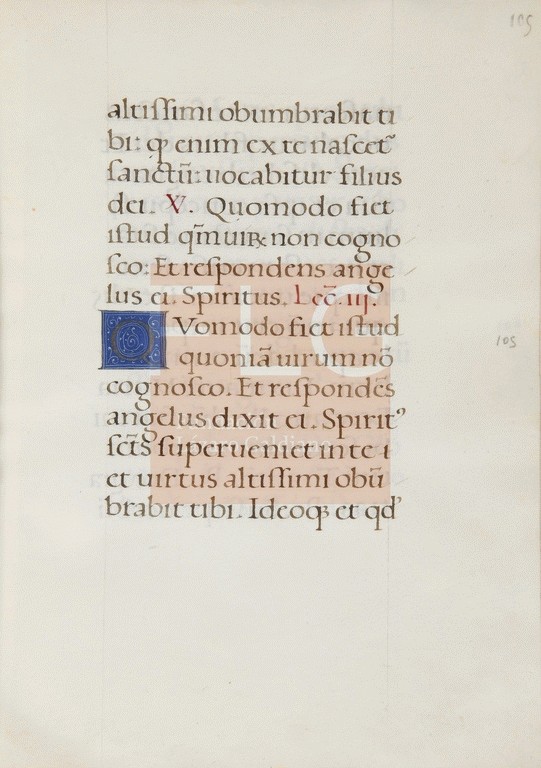 105
altissimi obumbrabit ti
bi: qꝫ enim ex te nascet᷑
sanctū: uocabitur filius
dei. V. Quomodo fiet
istud qm̄ uiꝝ non cogno
sco: Et respondens ange
lus ei. Spiritus. Lec̄. iij.
QVomodo fiet istud
quoniā uirum nō
cognosco. Et respondēs
angelus dixit ei. Spiritꝰ
sc̄ts superueniet in te ⁊
et uirtus altissimi obū
brabit tibi. Ideoqꝫ et qd'
105
FLG
Lázaro Galdiano